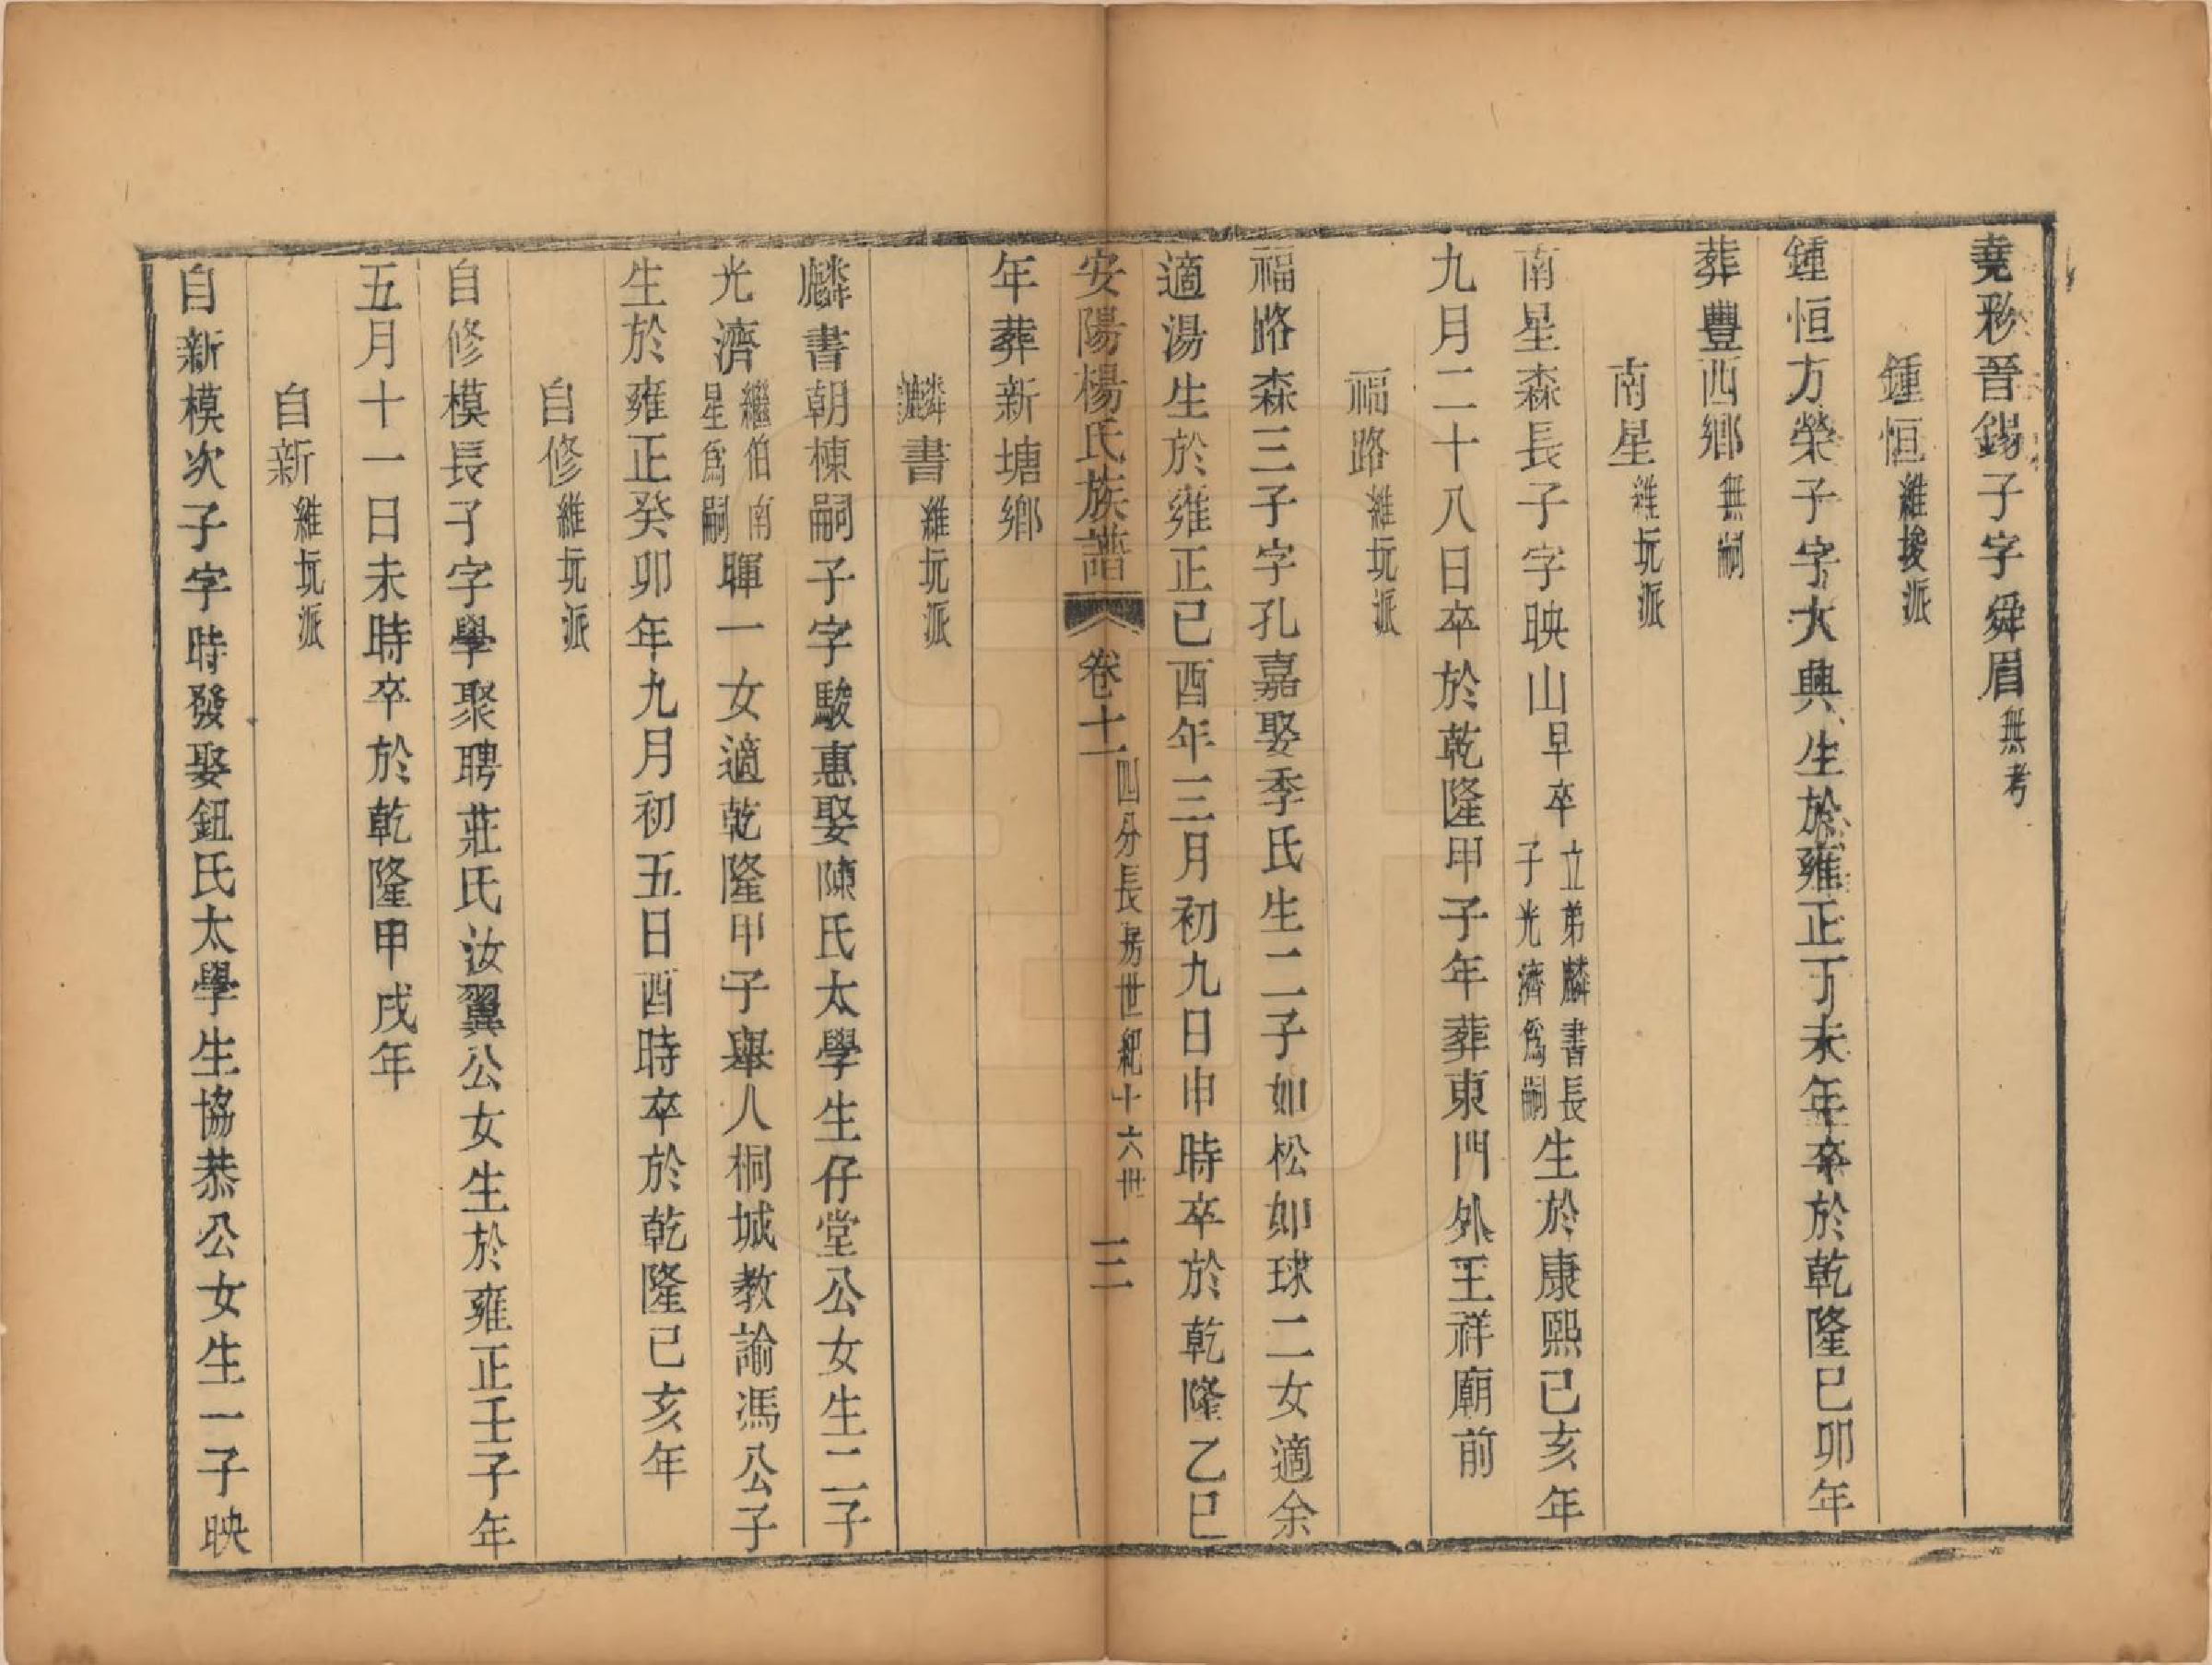 堯彩晉錫子字舜眉無考
鍾恒維埈派
鍾恒方榮子字大興生於雍正丁未年卒於乾隆己卯年
葬豐西鄉無嗣
南星維玩派
南星森長子字映山早卒立弟麟書長子光濟爲嗣生於康熙己亥年
九月二十八日卒於乾隆甲子年葬東門外王祥廟前
福路維玩派
福路森三子字孔嘉娶季氏生二子如松如球二女適余
適湯生於雍正己酉年三月初九日申時卒於乾隆乙巳
安陽楊氏族譜 卷十一 四分長房世紀十六世 三
年葬新塘鄉
麟書維玩派
麟書朝棟嗣子字駿惠娶陳氏太學生仔堂公女生二子
光濟繼伯南星爲嗣暉一女適乾隆甲子舉人桐城教諭馮公子
生於雍正癸卯年九月初五日酉時卒於乾隆己亥年
自修維玩派
自修模長子字學聚聘莊氏汝翼公女生於雍正壬子年
五月十一日未時卒於乾隆甲戌年
自新維玩派
自新模次子字時發娶鈕氏太學生協恭公女生一子映